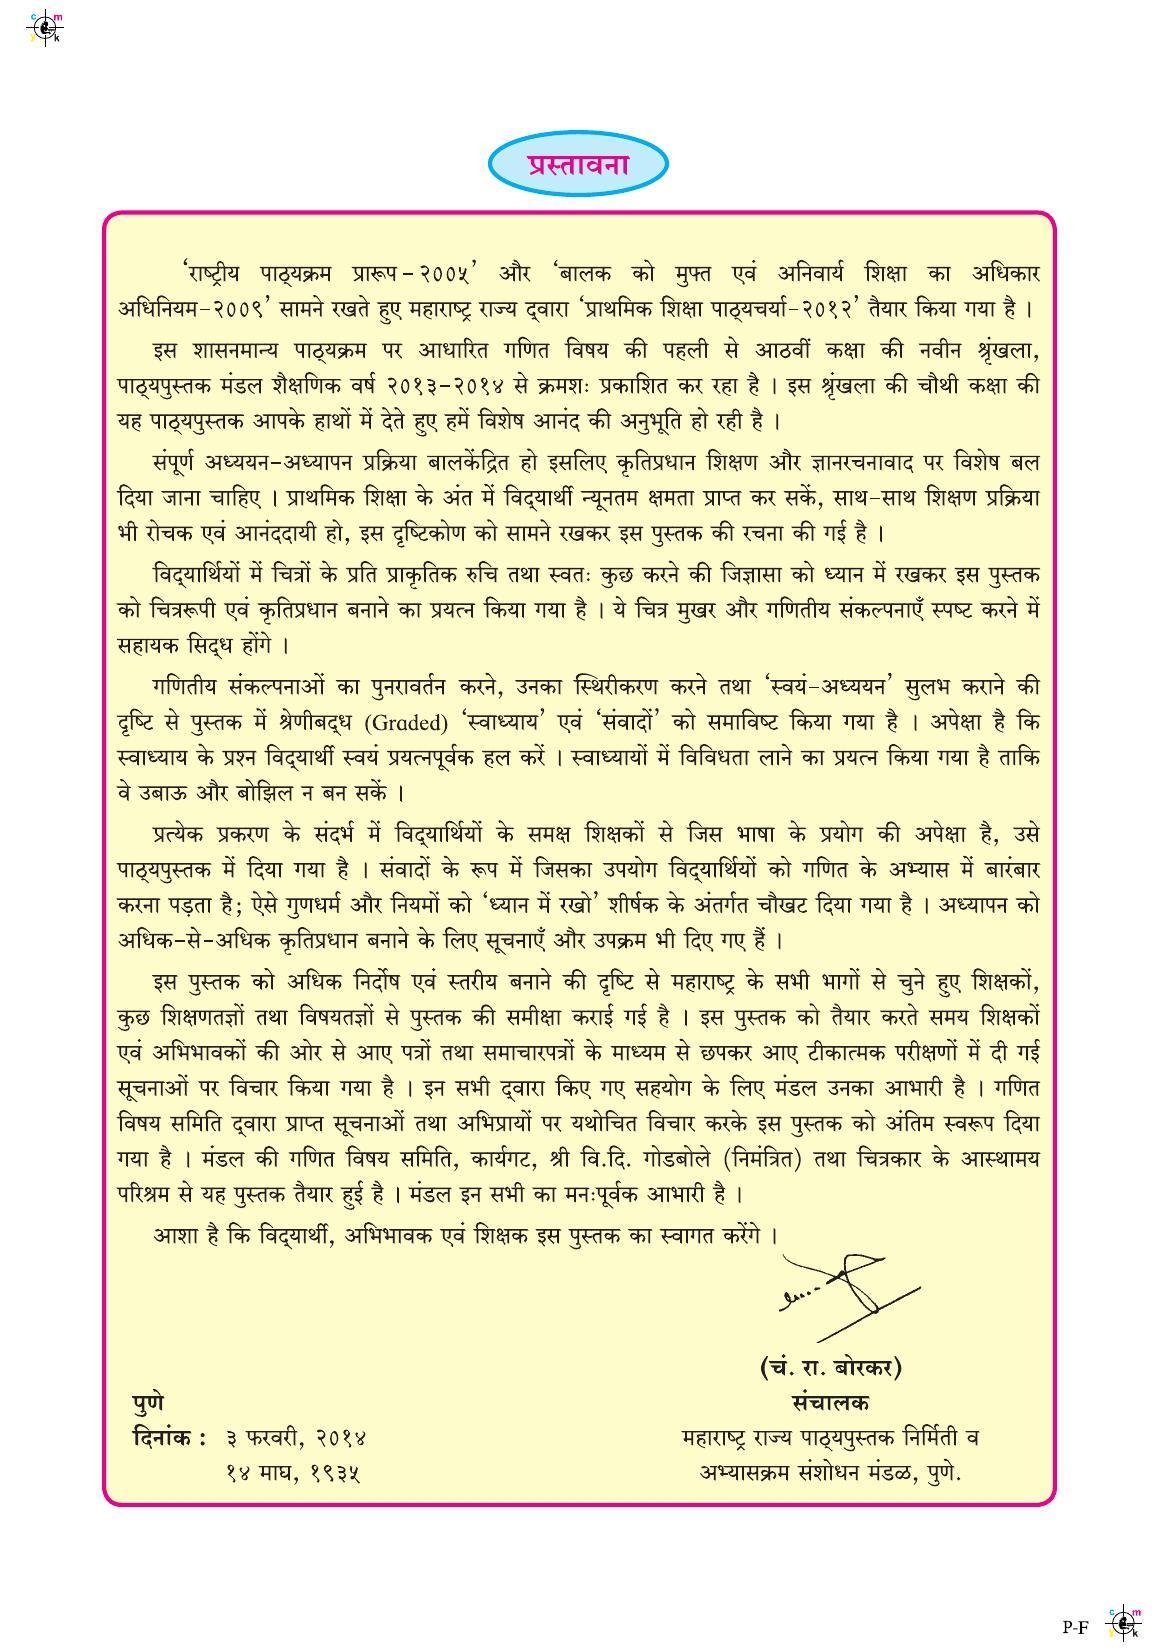 c m
y k
प्रस्तावना
‘राष्ट्रीय पाठ्यक्रम प्रारूप-२००५’ और ‘बालक को मुफ्त एवं अनिवार्य शिक्षा का अधिकार
अधिनियम-२००९’ सामने रखते हुए महाराष्ट्र राज्य द्‌वारा ‘प्राथमिक शिक्षा पाठ्यचर्या-२०१२’ तैयार किया गया है ।
इस शासनमान्य पाठ्यक्रम पर आधारित गणित विषय की पहली से आठवीं कक्षा की नवीन श्रृंखला,
पाठ्यपुस्तक मंडल शैक्षणिक वर्ष २०१३-२०१४ से क्रमशः प्रकाशित कर रहा है । इस श्रृंखला की चौथी कक्षा की
यह पाठ्यपुस्तक आपके हाथों में देते हुए हमें विशेष आनंद की अनुभूति हो रही है ।
संपूर्ण अध्ययन-अध्यापन प्रक्रिया बालकेंद्रित हो इसलिए कृतिप्रधान शिक्षण और ज्ञानरचनावाद पर विशेष बल
दिया जाना चाहिए । प्राथमिक शिक्षा के अंत में विद्‌यार्थी न्यूनतम क्षमता प्राप्त कर सकें, साथ-साथ शिक्षण प्रक्रिया
भी रोचक एवं आनंददायी हो, इस दृष्टिकोण को सामने रखकर इस पुस्तक की रचना की गई है ।
विद्‌यार्थियों में चित्रों के प्रति प्राकृतिक रुचि तथा स्वतः कुछ करने की जिज्ञासा को ध्यान में रखकर इस पुस्तक
को चित्ररूपी एवं कृतिप्रधान बनाने का प्रयत्न किया गया है । ये चित्र मुखर और गणितीय संकल्पनाएँ स्पष्ट करने में
सहायक सिद्‌ध होंगे ।
गणितीय संकल्पनाओं का पुनरावर्तन करने, उनका स्थिरीकरण करने तथा ‘स्वयं-अध्ययन’ सुलभ कराने की
दृष्टि से पुस्तक में श्रेणीबद्‌ध (Graded) ‘स्वाध्याय’ एवं ‘संवादों’ को समाविष्ट किया गया है । अपेक्षा है कि
स्वाध्याय के प्रश्न विद्‌यार्थी स्वयं प्रयत्नपूर्वक हल करें । स्वाध्यायों में विविधता लाने का प्रयत्न किया गया है ताकि
वे उबाऊ और बोझिल न बन सकें ।
प्रत्येक प्रकरण के संदर्भ में विद्‌यार्थियों के समक्ष शिक्षकों से जिस भाषा के प्रयोग की अपेक्षा है, उसे
पाठ्यपुस्तक में दिया गया है । संवादों के रूप में जिसका उपयोग विद्‌यार्थियों को गणित के अभ्यास में बारंबार
करना पड़ता है; ऐसे गुणधर्म और नियमों को ‘ध्यान में रखो’ शीर्षक के अंतर्गत चौखट दिया गया है । अध्यापन को
अधिक-से-अधिक कृतिप्रधान बनाने के लिए सूचनाएँ और उपक्रम भी दिए गए हैं ।
इस पुस्तक को अधिक निर्दोष एवं स्तरीय बनाने की दृष्टि से महाराष्ट्र के सभी भागों से चुने हुए शिक्षकों,
कुछ शिक्षणतज्ञों तथा विषयतज्ञों से पुस्तक की समीक्षा कराई गई है । इस पुस्तक को तैयार करते समय शिक्षकों
एवं अभिभावकों की ओर से आए पत्रों तथा समाचारपत्रों के माध्यम से छपकर आए टीकात्मक परीक्षणों में दी गई
सूचनाओं पर विचार किया गया है । इन सभी द्‌वारा किए गए सहयोग के लिए मंडल उनका आभारी है । गणित
विषय समिति द्‌वारा प्राप्त सूचनाओं तथा अभिप्रायों पर यथोचित विचार करके इस पुस्तक को अंतिम स्वरूप दिया
गया है । मंडल की गणित विषय समिति, कार्यगट, श्री वि.दि. गोडबोले (निमंत्रित) तथा चित्रकार के आस्थामय
परिश्रम से यह पुस्तक तैयार हुई है । मंडल इन सभी का मनःपूर्वक आभारी है ।
आशा है कि विद्‌यार्थी, अभिभावक एवं शिक्षक इस पुस्तक का स्वागत करेंगे ।
(चं. रा. बोरकर)
पुणे संचालक
दिनांक : ३ फरवरी, २०१४ महाराष्ट्र राज्य पाठ्यपुस्तक निर्मिती व
१४ माघ, १९३५ अभ्यासक्रम संशोधन मंडळ, पुणे.
P-F
c m
y k